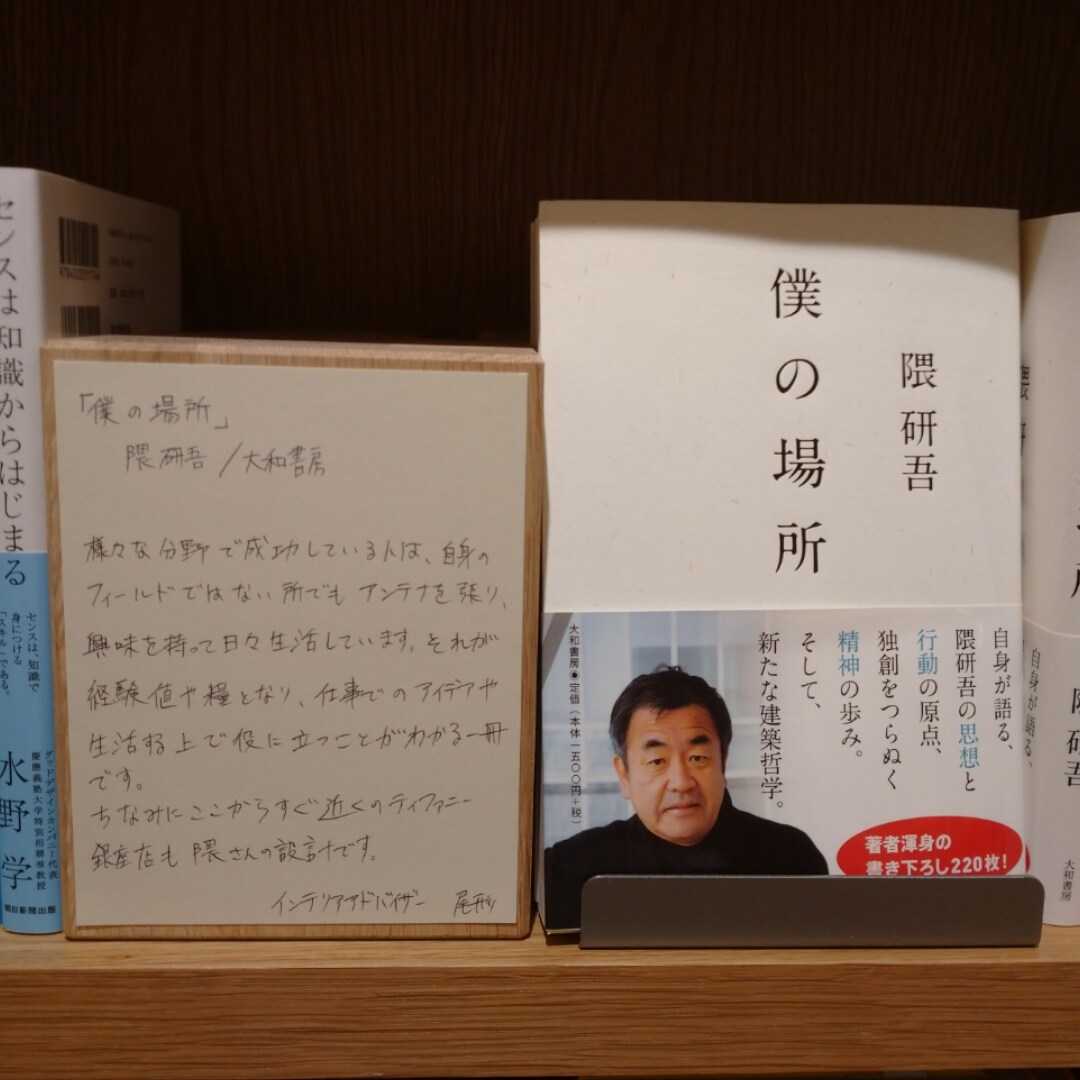 センスは知識からはじまる
センスは、知識で
身につける
「スキル」である。
水野 学
グッドデザインカンパニー代表
慶應義塾大学特別招聘准教授
朝日新聞出版
「僕の場所」
隈研吾/大和書房
様々な分野で成功している人は、自身の
フィールドではない所でもアンテナを張り、
興味を持って日々生活しています。それが
経験値や糧となり、仕事でのアイデアや
生活する上で役に立つことがわかる一冊
です。
ちなみにここからすぐ近くのティファニー
銀座店も隈さんの設計です。
インテリアアドバイザー 尾形
僕の場所
隈研吾
自身が語る、
隈研吾の思想と
行動の原点、
独創をつらぬく
精神の歩み。
そして、
新たな建築哲学。
大和書房●定価(本体一五〇〇円+税)
著者渾身の
書き下ろし220枚!
自身が語る、
隈研吾
大和書房